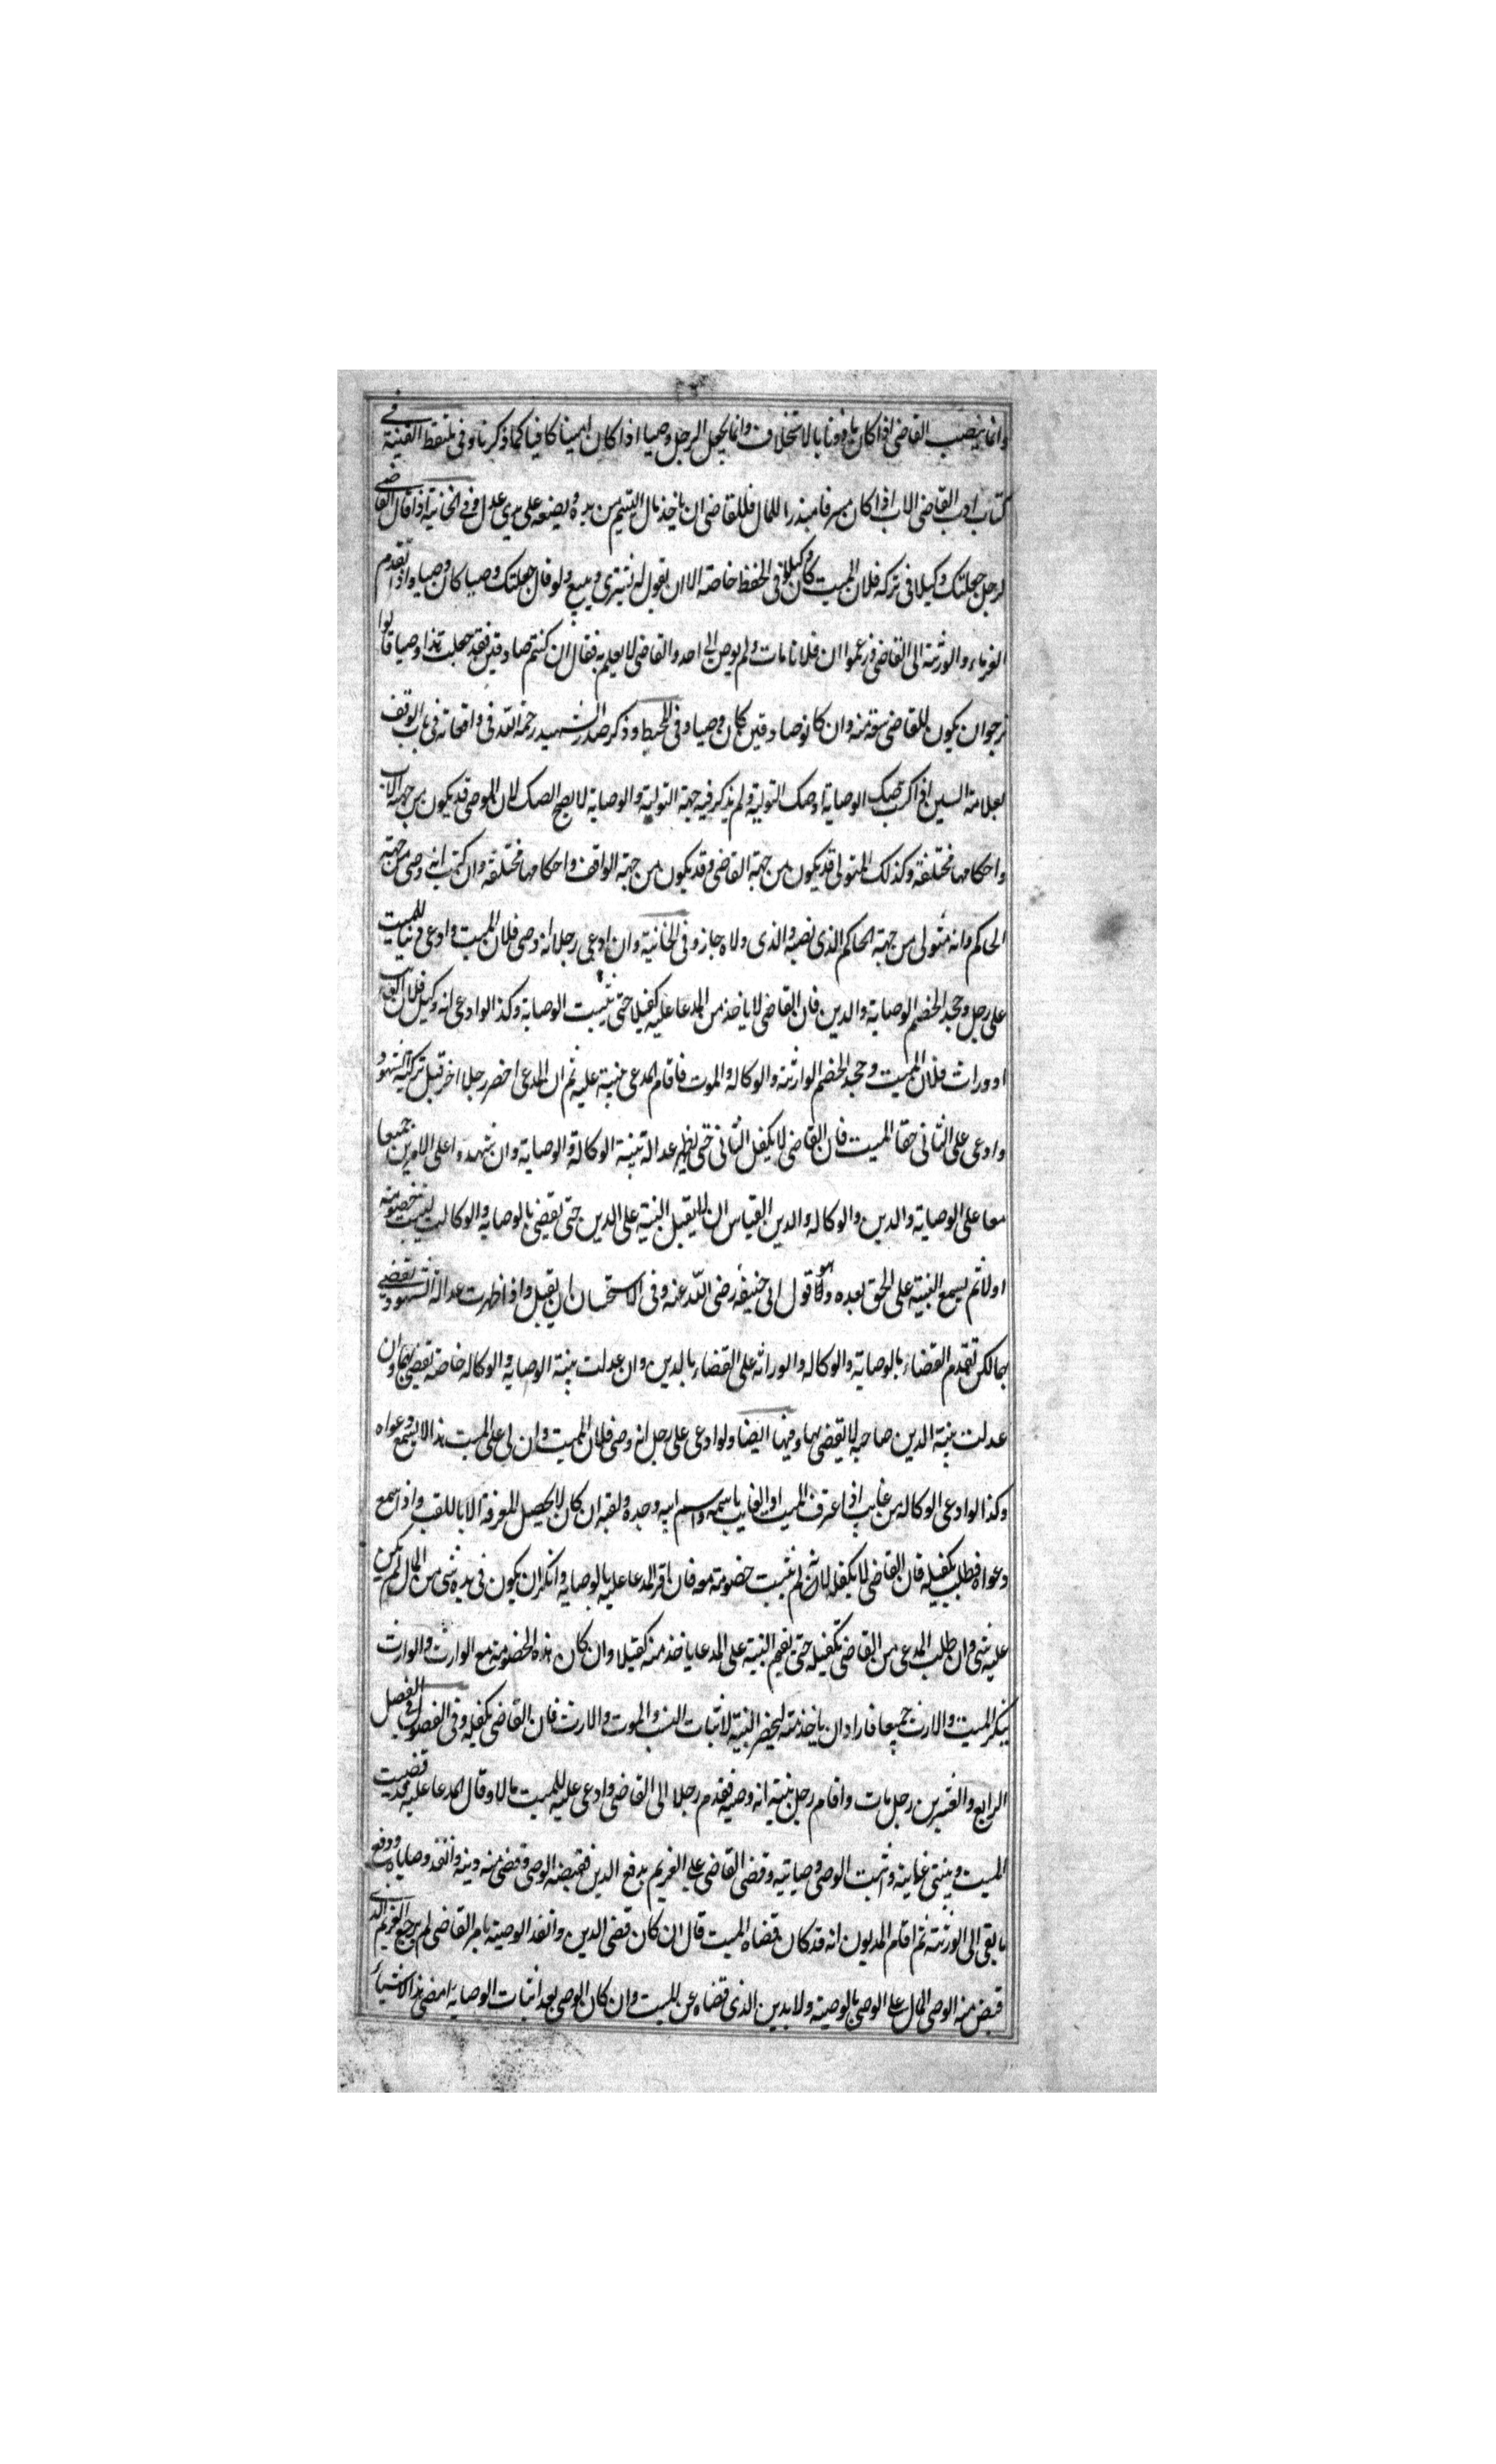 وانما ينصب القاضي اذا كان ماذونا بالاستخلاف وانما يجعل الرجل وصيا اذا كان امينا كافيا كما ذكرنا وفي ملتقط القنية في
كتاب ادب القاضي الاب اذا كان مسرفا مبذرا للمال فللقاضي ان ياخذ مال اليتيم من يده ويضعه على يدي عدل وفي الخانية اذا قال القاضي
لرجل جعلتك وكيلا في تركة فلان الميت كان وكيلا في الحفظ خاصة الا ان يقول له تشتري وتبيع ولو قال جعلتك وصيا كان وصيا واذا تقدم
الغرماء والورثة الى القاضي فزعموا ان فلانا مات ولم يوص الى احد والقاضي لا يعلم به فقال ان كنتم صادقين فقد جعلت هذا وصيا قالوا
نرجو ان يكون للقاضي سعة منه وان كانو صادقين كان وصيا وفي المحيط وذكر صدر الشهيد رحمة الله في واقعاته في باب الوقف
بعلامة السين اذا كتب صك الوصاية او صك التولية ولم يذكر فيه جهة التولية والوصاية لا يصح الصك لان الموصى قد يكون من جهة الاب
واحكامها مختلفة وكذلك المتولي قد يكون من جهة القاضي وقد يكون من جهة الواقف واحكامها مختلفة وان كتب انه وصي من جهة
الحاكم وانه متولى من جهة الحاكم الذي نصبه والذي ولاه جاز وفي الخانية وان ادعى رجل انه وصي فلان الميت وادعى دينا للميت
على رجل وجحد الخصم الوصاية والدين فان القاضي لا ياخذ من المدعا عليه كفيلا حتى يثبت الوصاية وكذا لو ادعى انه وكيل فلان الغايب
او وراث فلان الميت وجحد الخصم الوارثة والوكالة والموت فاقام المدعي بينة عليه ثم ان المدعي احضر رجلا اخر قبل تزكية الشهود
وادعى على الثاني حقا للميت فان القاضي لا يكفل الثاني حتى يظهر عدالة بينة الوكالة والوصاية وان شهدوا على الامرين جميعا
معا على الوصاية والدين والوكالة والدين القياس ان لا يقبل البينة على الدين حتى يقضي بالوصاية والوكالة ليثبت خصومته
اولا ثم يسمع البينة على الحق بعده وهو قول ابي حنيفة رضي الله عنه وفي الاستحسان ان يقبل واذا ظهرت عدالة الشهود يقضي
بهما لكن تقدم القضاء بالوصاية والوكالة والوراثة على القضاء بالدين وان عدلت بينة الوصاية والوكالة خاصة يقضي بهما وان
عدلت بينة الدين لا يقضي بها وفيها ايضا ولو ادعى على رجل انه وصي فلان الميت وان لي على الميت هذا لا يسمع دعواه
وكذا لو ادعى الوكالة من غايب اذا عرف الميت او الغايب باسمه واسم ابيه وجده ولقبه ان كان لا يحصل المعرفة الا باللقب واذا سمع
دعواه فطلب كفيله فان القاضي لا يكفل لانه لم يثبت خصومته معه فان اقر المدعا عليه بالوصاية وانكر ان يكون في يده شي من المال لم يكن
عليه شي وان طلب المدعي من القاضي تكفيله حتى يقيم البينة على المدعا ياخذ منه كفيلا وان كان هذه الخصومة مع الوارث والوارث
ينكر الميت والارث جميعا فاراد ان ياخذ منه ليحضر البينة لاثبات النسب والموت والارث فان القاضي يكفيله وفي الفصول في الفصل
الرابع والعشرين رجل مات واقام رجل بينة انه وصيه فقدم رجلا الى القاضي وادعى عليه للميت مالا وقال المدعا عليه قد قضيت
الميت وبينتي غايبة واثبت الوصي وصايته وقضى القاضي على الغريم بدفع الدين فقبضه الوصي وقضى منه دينه وانفذ وصاياه ودفع
ما بقي الى الورثة ثم اقام المديون انه قد كان قضاه الميت قال ان كان قضى الدين وانفذ الوصية بامر القاضي لم يرجع الغريم الذي
قبض منه الوصي المال على الوصي بالوصية ولا بدين الذي قضاه عن الميت وان كان الوصي بعد اثبات الوصاية امضى هذا الاشياء